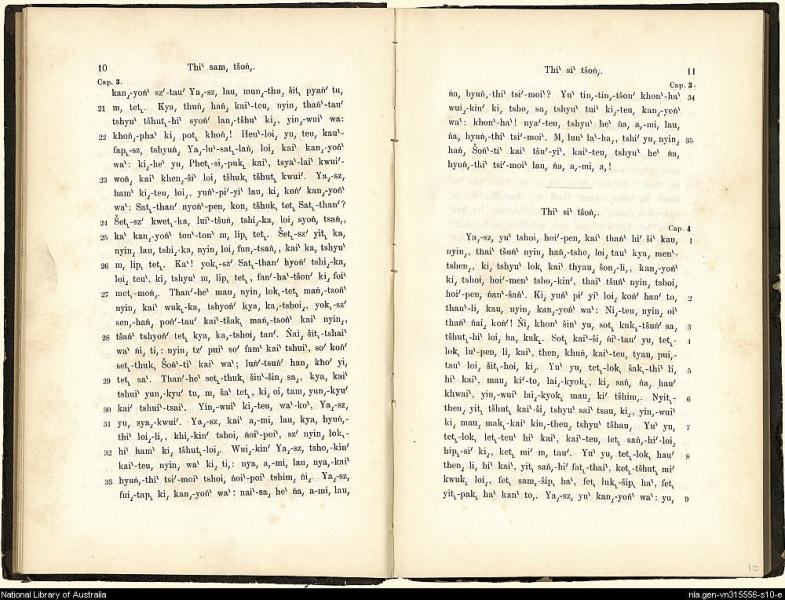 10
Thi‵ sam¸ tšoṅ¸.
Cap. 3.
kan¸-yoṅ‵ sz′-tau′ Ya¸-sz, lau, mun¸-thu¸ šit¸ pyaṅ′ tu,
21 m, tet¸. Kya, thuṅ, haṅ¸ kai‵-teu, nyin¸ thaṅ‵-tau′
tshyu‵ tšhut¸-hi‵ syoṅ′ lan¸-tšhu‵ ki¸, yin¸-wui‵ wa:
22 khoṅ¸-pha‵ ki, pot¸ khoṅ¸! Heu‵-loi¸ yu, teu, kau‵-
fap¸-sz, tshyuṅ, Ya¸-lu‵-sat¸-laṅ, loi¸ kai‵ kan¸-yoṅ‵
wa‵: ki¸-he‵ yu, Phet¸-si¸-puk¸ kai‵, tsya‵-lai kwui′-
23 woṅ¸ kai‵ khen¸-ši‵ loi, tšhuk¸ tšhut¸ kwui′. Ya¸-sz,
ham‵ ki¸-teu, loi¸, yuṅ‵-pi′-yi‵ lau, ki, koṅ′ kan¸-yoṅ‵
wa‵: Sat¸-than′ nyoṅ‵-pen, kon, tšhuk, tet¸ Sat¸-than′?
24 Šet¸-sz′ kwet¸-ka, lui‵-tšuṅ, tshi¸-ka, loi, syoṅ, tsaṅ¸,
25 ka‵ kan¸-yoṅ‵ ton‵-ton‵ m, lip, tet¸. Šet¸-sz′ yit¸ ka,
nyin, lau, tshi¸-ka, nyin, loi, fun¸-tsaṅ¸, kai‵ ka, tshyu‵
26 m, lip, tet¸. Ka‵! yok¸-sz′ Sat¸-than′ hyoṅ′ tshi¸-ka,
loi, teu‵ ki, tshyu‵ m, lip, tet¸, faṅ′-ha‵-tšon′ ki, foi‵
27 met¸-moṅ¸. Than′-he‵ mau, nyin, lok¸-tet¸ maṅ¸-tsoṅ‵
nyin, kai‵ wuk¸-ka, tshyoṅ′ kya, ka¸-tshoi¸, yok¸-sz′
sen¸-haṅ, poṅ′-tau′ kai‵-tšak¸ maṅ¸-tsoṅ‵ kai‵ nyin¸,
28 tšaṅ‵ tshyoṅ′ tet¸ kya, ka¸-tshoi¸ tau′. Ṅai¸ šit¸-tshai‵
wa‵ ṅi, ti,: nyin, tz′ pui‵ so′ fam‵ kai‵ tshui‵, so′ koṅ′
set¸-thuk, Šoṅ‵-ti‵ kai‵ wa‵: luṅ′-tsuṅ′ han, kho′ yi,
29 tet¸ sa‵. Than′-he‵ set¸-thuk, šin‵-šin, sa¸, kya, kai‵
tshui‵ yun¸-kyu′ tu, m, ša‵ tet¸, ki, oi, tam, yun¸-kyu′
30 kai‵ tshui‵-tsai‵. Yin¸-wui‵ ki¸-teu, wa‵-ko‵, Ya¸-sz,
31 yu, sya¸-kwui′. Ya¸-sz, kai‵ a¸-mi, lau, kya, hyuṅ¸-
thi‵ loi¸-li¸, khi¸-kin′ tshoi, ṅoi‵-poi‵, sz′ nyin, lok¸-
32 hi‵ ham‵ ki, tšhut¸-loi¸. Wui¸-kin′ Ya¸-sz, tsho¸-kin′
kai‵-teu, nyin, wa‵ ki, ti,: nya, a¸-mi, lau, nya¸-kai‵
33 hyuṅ¸-thi‵ tsi′-moi‵ tshoi, ṅoi‵-poi‵ tshim, ṅi¸. Ya¸-sz,
fui¸-tap¸ ki, kan¸-yoṅ‵ wa‵: nai‵-sa, he‵ ṅa, a-mi, lau,

Thi‵ si‵ tšoṅ¸.
11
Cap. 3
ṅa, hyuṅ¸-thi‵ tsi′-moi‵? Yu‵ tin¸-tin¸-tšon′ khon‵-ha‵ 34
wui¸-kin′ ki, tsho, sa, tshyu‵ tui‵ ki¸-teu, kan¸-yoṅ‵
wa‵: khon‵-ha‵! nya′-teu, tshyu‵ he‵ ṅa, a¸-mi, lau,
ṅa, hyuṅ¸-thi‵ tsi′-moi‵. M, lun‵ la‵-ha¸, tshi′ yu, nyin¸ 35
haṅ, Šoṅ‵-ti‵ kai‵ tšu′-yi‵, kai‵-teu, tshyu‵ he‵ ṅa,
hyuṅ¸-thi‵ tsi′-moi‵ lau, ṅa, a¸-mi, a¸!

Thi‵ si‵ tšoṅ¸.
Cap. 4
Ya¸-sz, yu‵ tshoi, hoi′-pen, kai‵ thaṅ‵ hi′ ši‵ kau, 1
nyin¸, thai‵ tšuṅ‵ nyin, haṅ¸-tshe, loi¸ tau‵ kya, men‵-
tshen¸, ki, tshyu‵ lok, kai‵ thyau, šon¸-li¸, kan¸-yoṅ‵
ki, tshoi, hoi′-men‵ tsho¸-kin′, thai‵ tšuṅ‵ nyin, tshoi,
hoi′-pen, ṅan‵-šaṅ‵. Ki, yuṅ‵ pi′ yi‵ loi, koṅ′ hau‵ to, 2
thau‵-li, kau, nyin, kan¸-yoṅ‵ wa‵: Ni¸-teu, nyin, oi‵
thaṅ‵ ṅai¸ koṅ′! Ṅi, khon‵ šin‵ yu, sot¸ kuk¸-tšuṅ′ sa, 3
tšhut¸-hi‵ loi, ha, kuk¸. Sot¸ kai‵-ši, ṅi‵-tau′ yu, tet¸- 4
lok, lu‵-pen, li, kai‵, then, khuṅ, kai‵-teu, tyau, pui¸-
tau‵ loi, šit¸-hoi, ki¸. Yu‵ yu, tet¸-lok, šak¸-thi‵ li, 5
hi‵ kai‵, mau, ki′-to, lai¸-kyok¸, ki, saṅ, ṅa, hau′
khwai′, yin¸-wui‵ lai¸-kyok, mau, ki′ tšhim¸. Nyit¸- 6
theu, yit¸ tšhut¸ kai‵-ši, tshyu‵ sai‵ tsau, ki¸, yin¸-wui‵
ki, mau, mak¸-kai‵ kin¸-theu, tshyu‵ tšhau¸. Yu‵ yu, 7
tet¸-lok, let¸-teu‵ hi‵ kai‵, kai‵-teu, let¸ saṅ¸-hi′-loi¸
hip¸-si′ ki¸, ket¸ mi′ m, tau′. Yu‵ yu, tet¸-lok, hau′ 8
then, li, hi‵ kai‵, yit¸ saṅ¸-hi′ fat¸-thai‵, ket¸-tšhut¸ mi′
kwuk, loi¸, fet¸ sam¸-šip, ha‵, fet¸ luk¸-šip, ha‵, fet¸
yit¸-pak¸ ha‵ kan‵ to¸. Ya¸-sz, yu‵ kan¸-yoṅ‵ wa‵: yu, 9
10
National Library of Australia
nla.gen-vn315556-s10-e